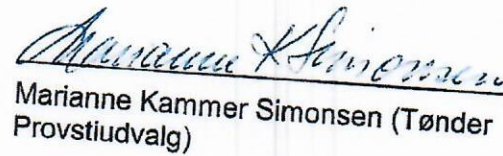 Marianne K Simonsen
Marianne Kammer Simonsen (Tønder
Provstiudvalg)